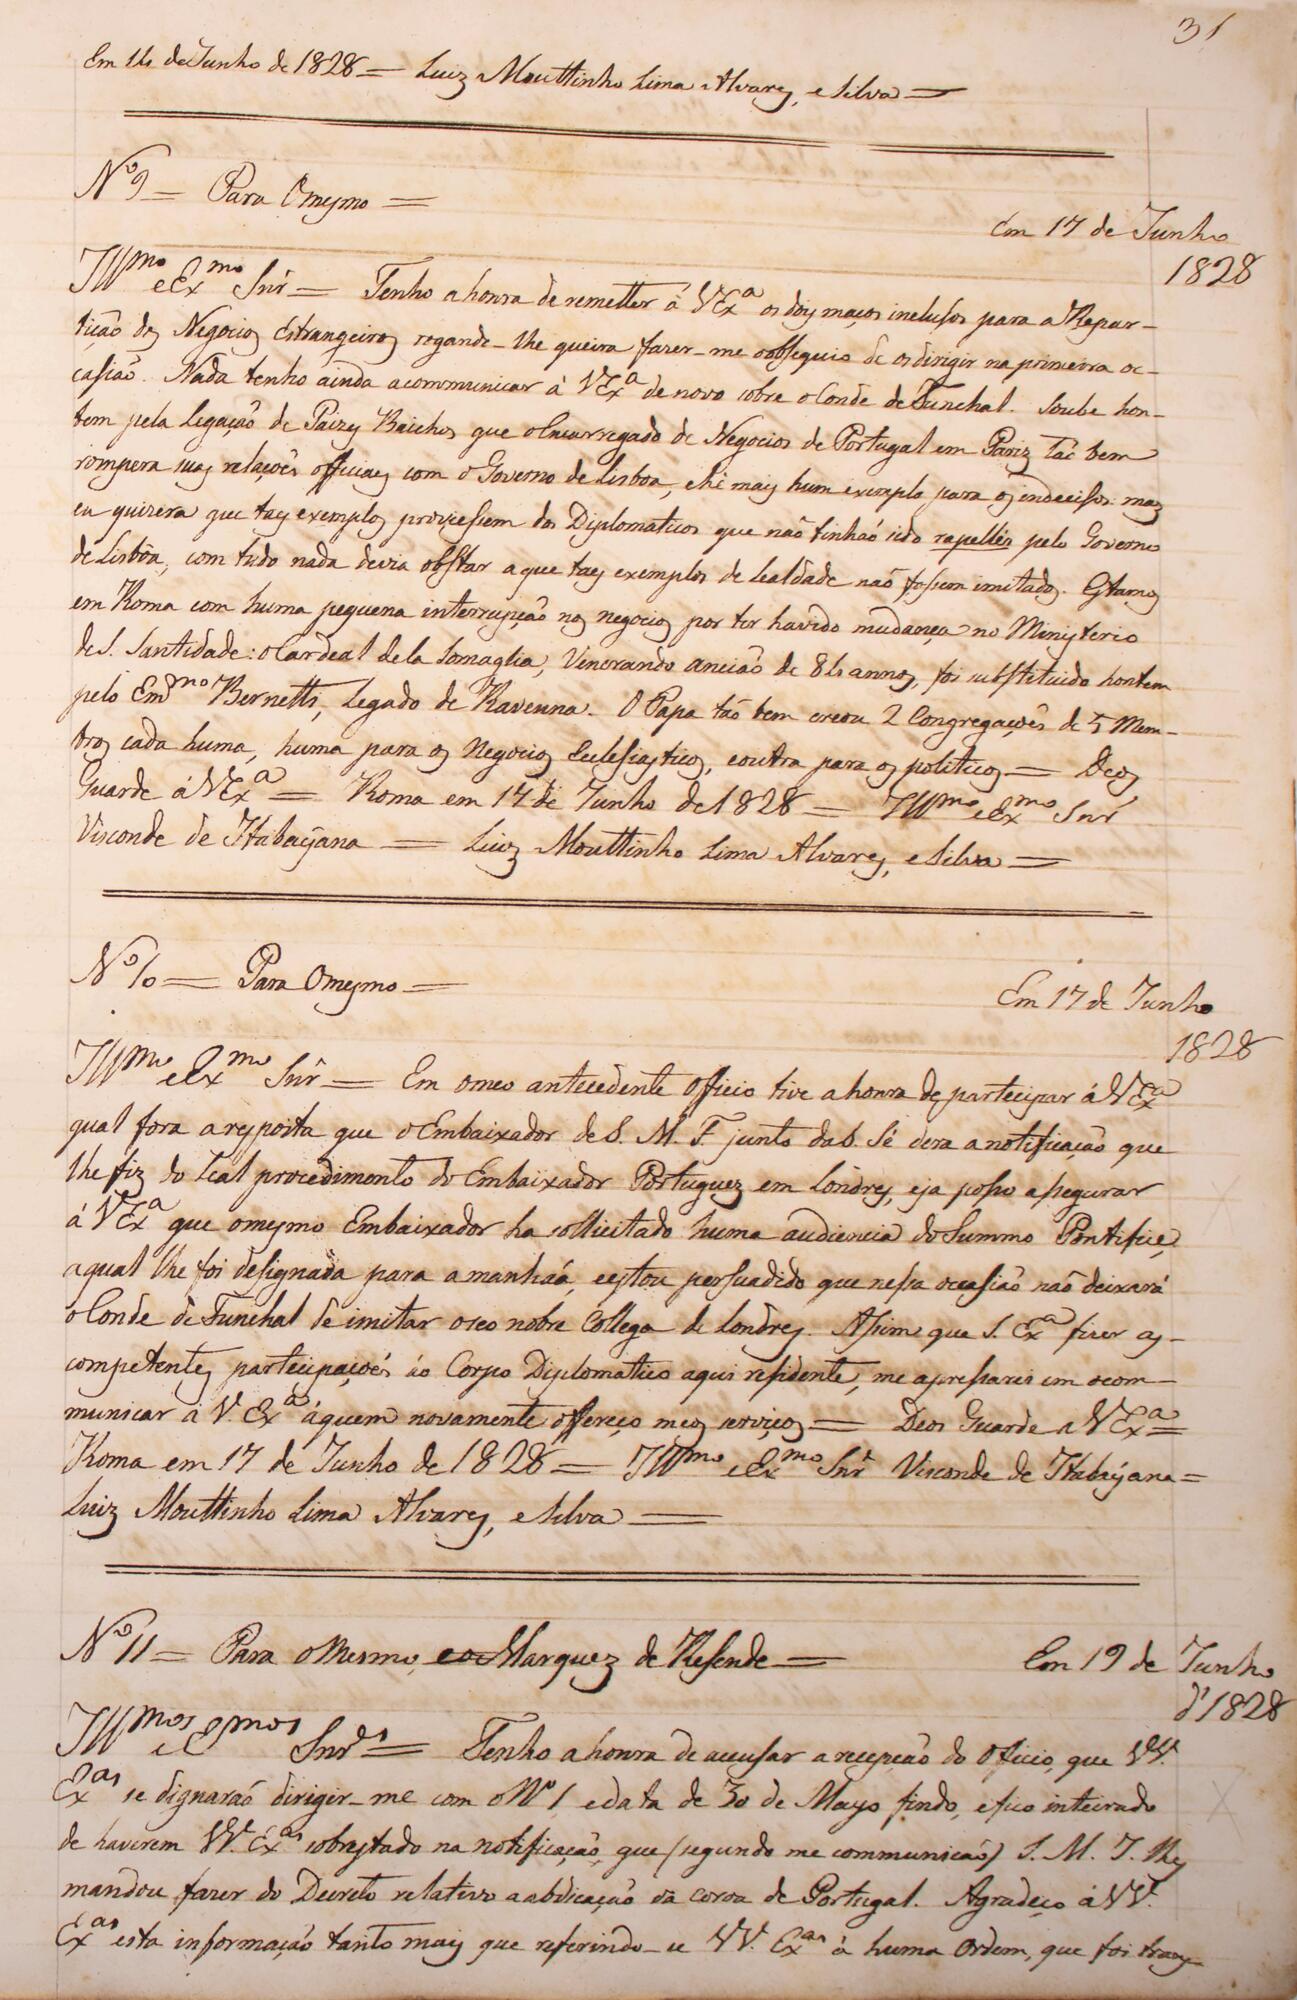 31
Em 14 de Junho de 1828 = Luiz Mouttinho Lima Alvarez, e Silva =
Nº 9 = Para Omesmo =
Em 17 de Junho
1828
Illmo e Exmo Snr = Tenho a honra de remetter á VExa os dois maços inclusos para a Repar-
tição dos Negocios Estrangeiros rogando-lhe queira fazer-me o obsequio de os dirigir na primeira oc-
casião. Nada tenho ainda a communicar á VExa de novo sobre o Conde de Funchal. Soube hon-
tem pela Legação de Paizes Baichos que o Encarregado de Negocios de Portugal em Pariz tão bem
rompera suas relações officiaes com o Governo de Lisboa, e hé mais hum exemplo para os indecisos: mas
eu quizera que taes exemplos proviessem dos Diplomaticos que não tinhaó sido rapellés pelo Governo
de Lisbôa, com tudo nada devia obstar a que taes exemplos de Lealdade naó fossem imitados. Estamos
em Roma com huma pequena interrupção nos negocios por ter havido mudança no Ministerio
de S. Santidade: o Cardeal de la Somaglia, Venerando anciaõ de 84 annos, foi substituido hontem
pelo Emmo Bernetti, Legado de Ravenna. O Papa taõ bem creou 2 Congregações de 5 Mem-
bros cada huma, huma para os Negocios Ecclesiasticos, e outra para os politicos = Deos
Guarde á VExa = Roma em 17 de Junho de 1828 = Illmo e Exmo Snr
Visconde de Itabayana = Luiz Mouttinho Lima Alvarez, e Silva =
Nº 10 = Para Omesmo =
Em 17 de Junho
1828
Illmo e Exmo Snr = Em o meo antecedente Officio tive a honra de partecipar á VExa
qual fora a resposta que o Embaixador de S. M. F. junto da S. Sé dera a notificação que
lhe fiz do Leal procedimento do Embaixador Portuguez em Londres, e ja posso assegurar
á VExa que o mesmo Embaixador ha sollicitado huma audiencia do Summo Pontifice,
a qual lhe foi designada para a manhaã, e estou persuadido que nessa occasião não deixará
o Conde de Funchal de imitar o seo nobre Collega de Londres. Assim que S. Exa fizer as
competentes partecipações áo Corpo Diplomatico aqui residente, me apressarei em o com-
municar á V. Exa á quem novamente offereço meos serviços = Deos Guarde a VExa =
Roma em 17 de Junho de 1828 = Illmo e Exmo Snr Visconde de Itabayana =
Luiz Mouttinho Lima Alvarez, e Silva =
Nº 11 = Para o Mesmo, e o Marquez de Resende =
Em 19 de Junho
d'1828
Illmos e Emos Snrds = Tenho a honra de accusar a recepção do Officio, que VV.
Exas se dignaraó dirigir-me com o Nº 1 e data de 30 de Mayo findo, e fico inteirado
de haverem VV. Exas sobrestado na notificação, que (segundo me communicaõ) S. M. I. lhes
mandou fazer do Decreto relativo a abdicação da coroa de Portugal. Agradeço á VV.
Exas esta informação tanto mais que referindo-se VV. Exas á huma Ordem, que foi trans-